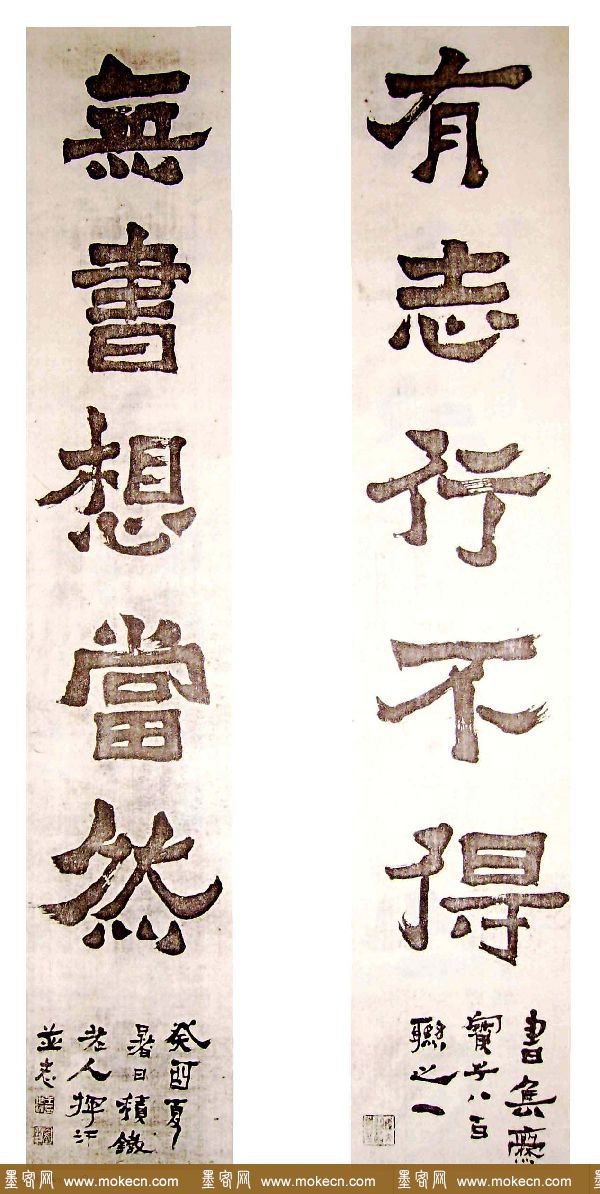 有志行不得
書集爨
寶子八百
聯之一
無書想當然
癸酉夏
暑日積鐵
老人揮汗
並志
墨客网 www.mokecn.com 墨客网 www.mokecn.com 墨客网 www.mokecn.com 墨客网